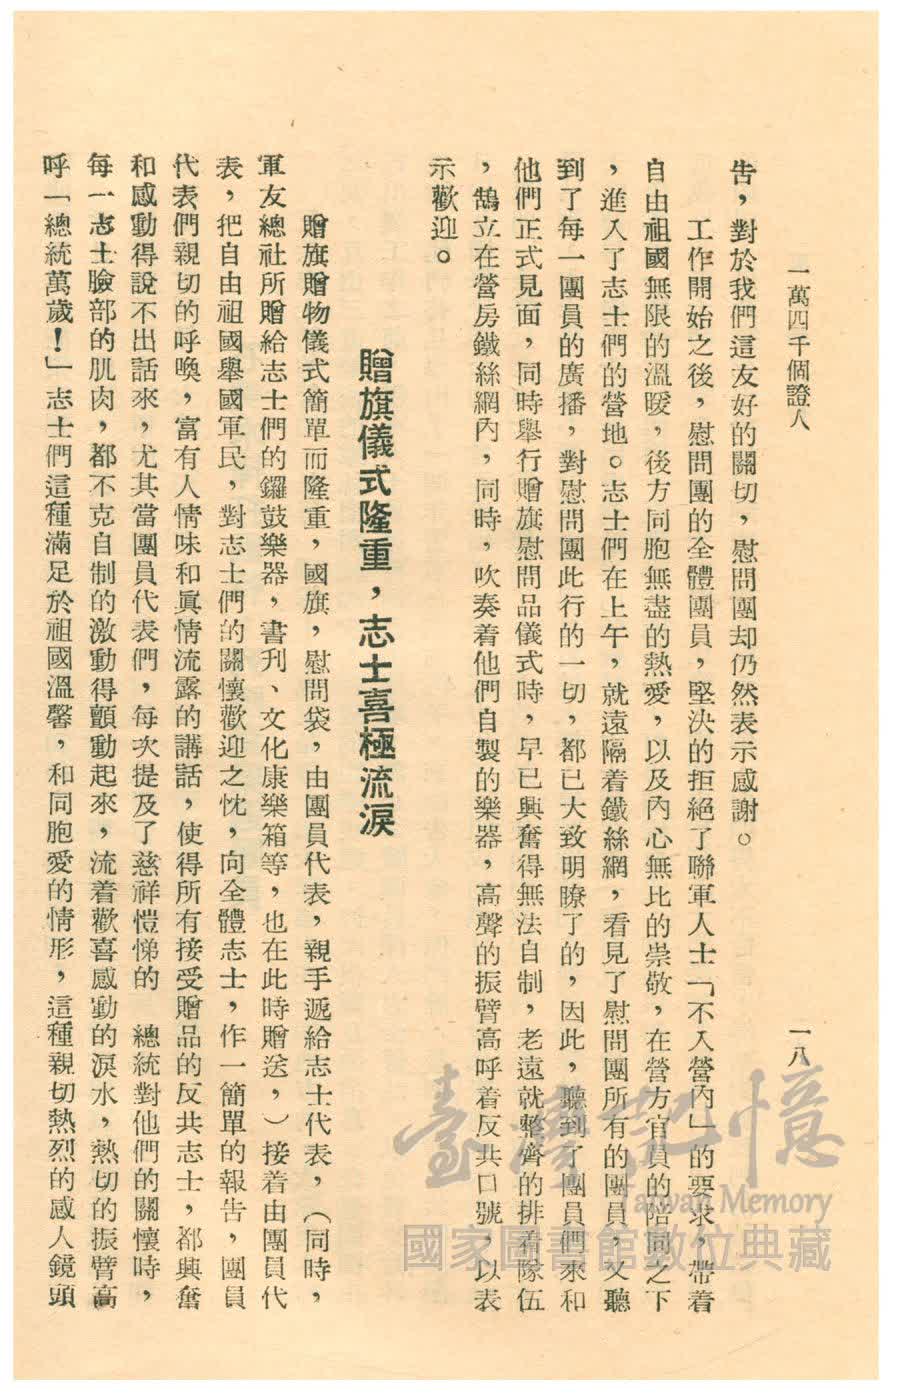 一萬四千個證人
一八
告，對於我們這友好的關切，慰問團却仍然表示感謝。
工作開始之後，慰問團的全體團員，堅決的拒絕了聯軍人士「不入營內」的要求，帶着
自由祖國無限的溫暖，後方同胞無盡的熱愛，以及內心無比的崇敬，在營方官員的陪同之下
，進入了志士們的營地。志士們在上午，就遠隔着鐵絲網，看見了慰問團所有的團員，又聽
到了每一團員的廣播，對慰問團此行的一切，都已大致明瞭了的，因此，聽到了團員們來和
他們正式見面，同時舉行贈旗慰問品儀式時，早已興奮得無法自制，老遠就整齊的排着隊伍
，鵠立在營房鐵絲網內，同時，吹奏着他們自製的樂器，高聲的振臂高呼着反共口號，以表
示歡迎。
贈旗儀式隆重，志士喜極流淚
贈旗贈物儀式簡單而隆重，國旗，慰問袋，由團員代表，親手遞給志士代表，（同時，
軍友總社所贈給志士們的鑼鼓樂器，書刊、文化康樂箱等，也在此時贈送，）接着由團員代
表，把自由祖國舉國軍民，對志士們的關懷歡迎之忱，向全體志士，作一簡單的報告，團員
代表們親切的呼喚，富有人情味和眞情流露的講話，使得所有接受贈品的反共志士，都興奮
和感動得說不出話來，尤其當團員代表們，每次提及了慈祥愷悌的　總統對他們的關懷時，
每一志士臉部的肌肉，都不克自制的激動得顫動起來，流着歡喜感動的淚水，熱切的振臂高
呼「總統萬歲！」志士們這種滿足於祖國溫馨，和同胞愛的情形，這種親切熱烈的感人鏡頭
臺灣記憶
Taiwan Memory
國家圖書館數位典藏